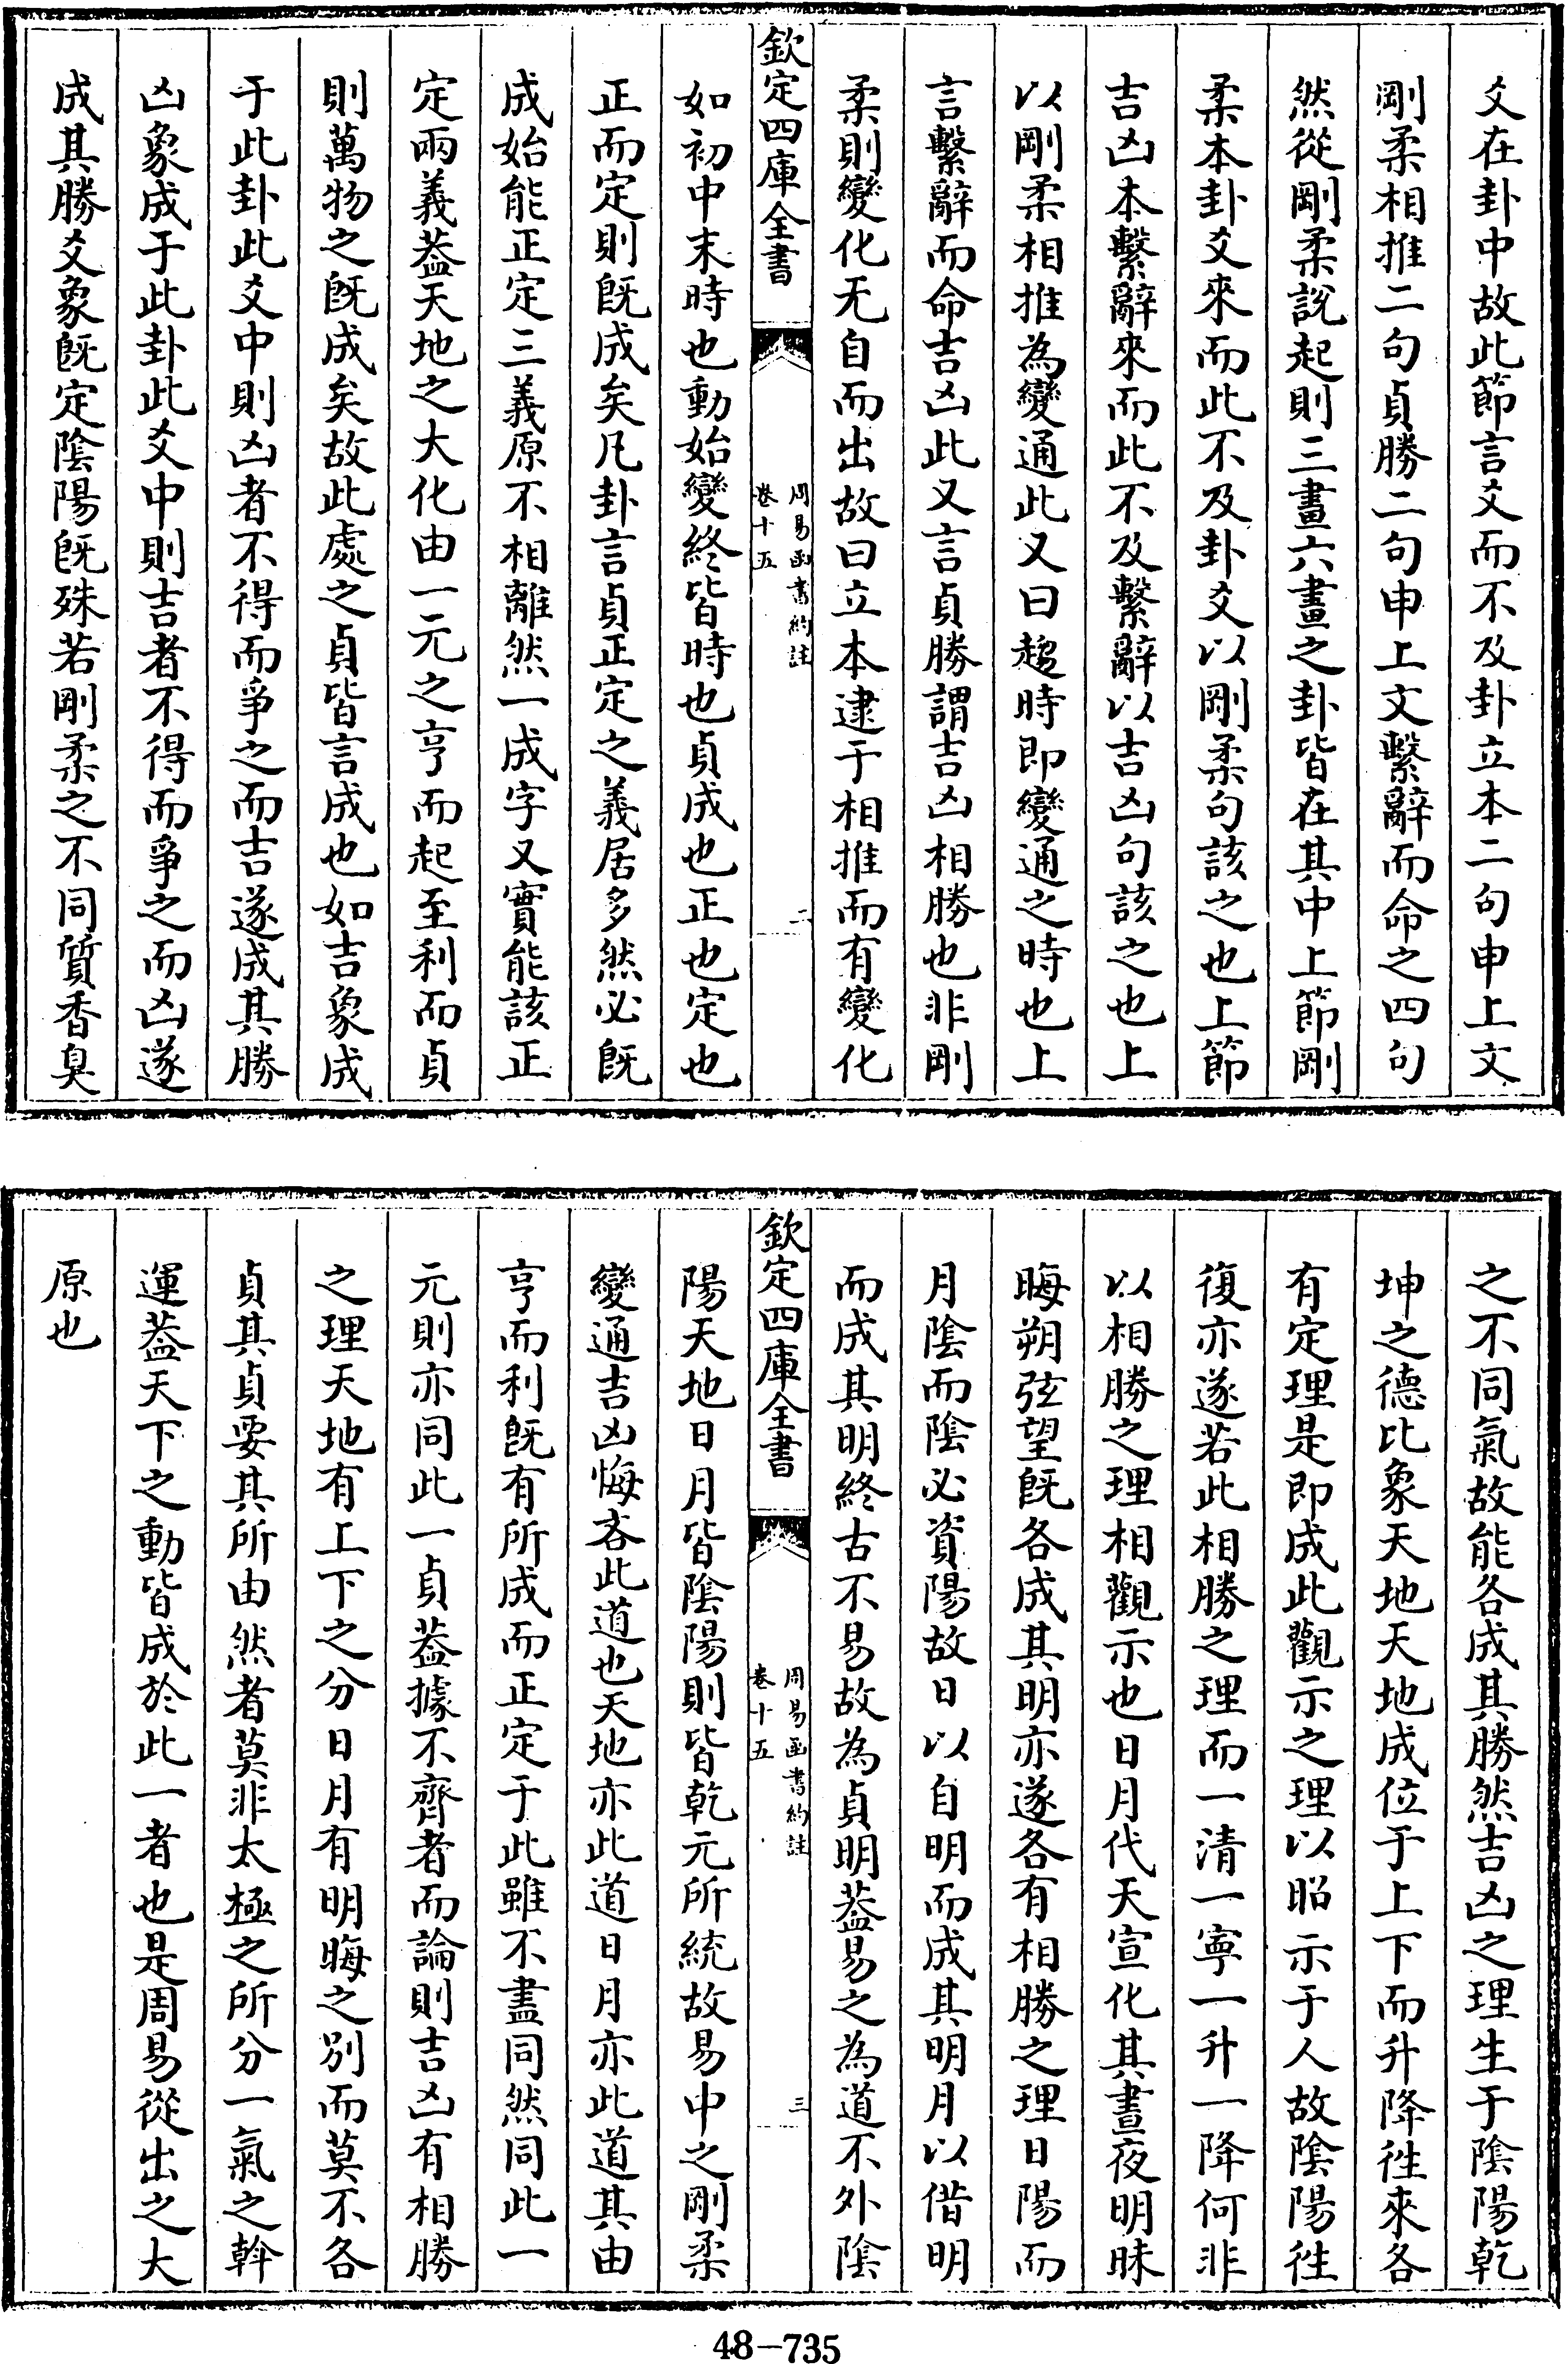 爻在卦中故此節言爻而不及卦立本二句申上文
剛柔相推二句貞勝二句申上文繫辭而命之四句
然從剛柔說起則三畫六畫之卦皆在其中上節剛
柔本卦爻來而此不及卦爻以剛柔句該之也上節
吉凶本繫辭來而此不及繫辭以吉凶句該之也上
以剛柔相推為變通此又曰趨時即變通之時也上
言繫辭而命吉凶此又言貞勝謂吉凶相勝也非剛
柔則變化无自而出故曰立本逮于相推而有變化
欽定四庫全書
周易函書約註
卷十五
二
如初中末時也動始變終皆時也貞成也正也定也
正而定則既成矣凡卦言貞正定之義居多然必既
成始能正定三義原不相離然一成字又實能該正
定兩義葢天地之大化由一元之亨而起至利而貞
則萬物之既成矣故此處之貞皆言成也如吉象成
于此卦此爻中則凶者不得而爭之而吉遂成其勝
凶象成于此卦此爻中則吉者不得而爭之而凶遂
成其勝爻象既定陰陽既殊若剛柔之不同質香臭
之不同氣故能各成其勝然吉凶之理生于陰陽乾
坤之德比象天地天地成位于上下而升降徃來各
有定理是即成此觀示之理以昭示于人故陰陽徃
復亦遂若此相勝之理而一清一寧一升一降何非
以相勝之理相觀示也日月代天宣化其晝夜明昧
晦朔弦望既各成其明亦遂各有相勝之理日陽而
月陰而陰必資陽故日以自明而成其明月以借明
而成其明終古不易故為貞明葢易之為道不外陰
欽定四庫全書
周易函書約註
卷十五
三
陽天地日月皆陰陽則皆乾元所統故易中之剛柔
變通吉凶悔吝此道也天地亦此道日月亦此道其由
亨而利既有所成而正定于此雖不盡同然同此一
元則亦同此一貞葢據不齊者而論則吉凶有相勝
之理天地有上下之分日月有明晦之別而莫不各
貞其貞要其所由然者莫非太極之所分一氣之斡
運葢天下之動皆成於此一者也是周易從出之大
原也
48-735